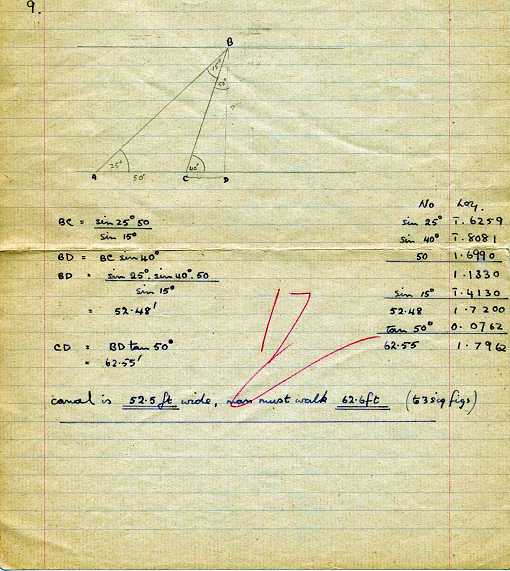 9.
B
15°
50°
25°
40°
A 50' C D
No Log.
BC = sin 25° 50 sin 25° 1̄.6259
sin 15° sin 40° 1̄.8081
BD = BC sin 40° 50 1.6990
BD = sin 25°. sin 40°. 50 1.1330
sin 15° sin 15° 1̄.4130
= 52.48' 52.48 1.7200
tan 50° 0.0762
CD = BD tan 50° 62.55 1.7962
= 62.55'
17
canal is 52.5 ft wide, man must walk 62.6 ft (to 3 sig figs)